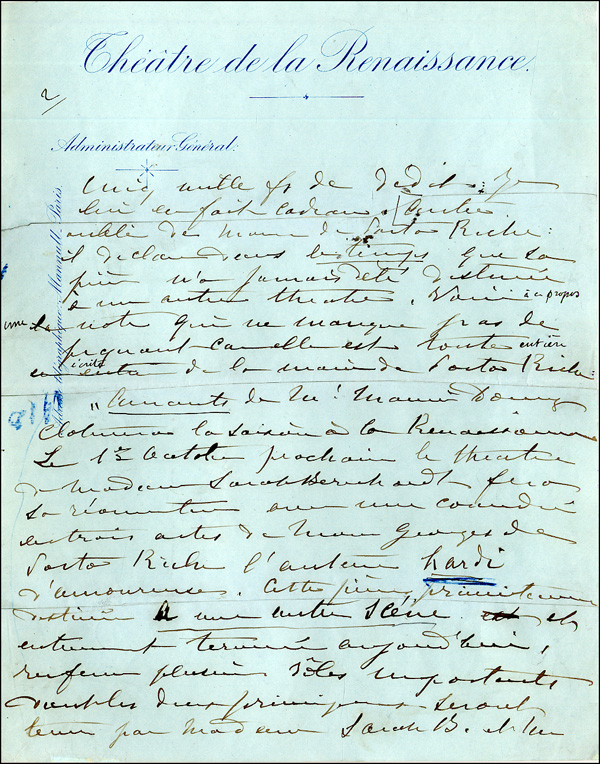 Théâtre de la Renaissance.
2/
Administrateur Général:
Cinq mille fr de dédit: Je
lui en fait cadeau. Autre
oubli de Monsr de Porto Riche:
il déclare dans le temps que sa
pièce n'a jamais été destinée
à une autre théâtre. Voici à ce propos
une note qui ne manque pas de
piquant car elle est toute entière
écrite de la main de Porto Riche:
"Amants de Mr Maurice Donnay
clôturera la saison à la Renaissance
Le 1er Octobre prochain le théâtre
de Madame Sarah Bernhardt fera
sa réouverture avec une comédie
en trois actes de Monsr Georges de
Porto Riche l'auteur hardi
d'amoureuse. Cette pièce, primitivement
destinée à une autre scène et
entièrement terminée aujourd'hui,
renferme plusieurs rôles importants
dont les deux principaux seront
tenus par Madame Sarah B. et Mr